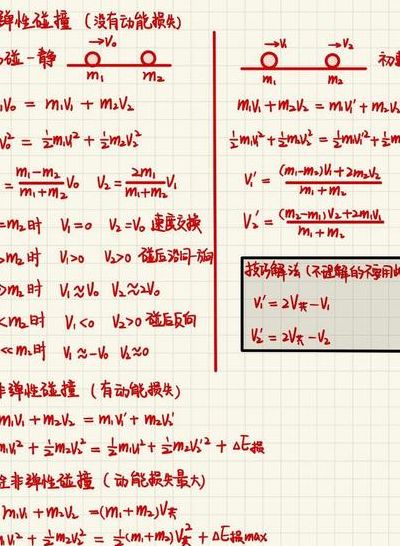 弹性碰撞 (没有动能损失)
碰一静
→V₀
m₁ m₂
V₀ = m₁V₁ + m₂V₂
V₀² = ½m₁V₁² + ½m₂V₂²
= (m₁-m₂)/(m₁+m₂) V₀ V₂ = 2m₁/(m₁+m₂) V₁
=m₂时 V₁=0 V₂=V₀ 速度交换
>m₂时 V₁>0 V₂>0 碰后沿同一方向
>m₂时 V₁≈V₀ V₂≈2V₀
<m₂时 V₁<0 V₂>0 碰后反向
<<m₂时 V₁≈-V₀ V₂≈0
→V₁ →V₂
m₁ m₂
初
m₁V₁ + m₂V₂ = m₁V₁' + m₂V₂
½m₁V₁² + ½m₂V₂² = ½m₁V₁'² + ½m
V₁' = ((m₁-m₂)V₁+2m₂V₂)/(m₁+m₂)
V₂' = ((m₂-m₁)V₂+2m₁V₁)/(m₁+m₂)
技巧解法 (不理解的不要用
V₁' = 2V共 - V₁
V₂' = 2V共 - V₂
非弹性碰撞 (有动能损失)
m₁V₁ + m₂V₂ = m₁V₁' + m₂V₂'
m₁V₁² + ½m₂V₂² = ½m₁V₁² + ½m₂V₂'² + ΔE损
非弹性碰撞 (动能损失最大)
m₁V₁ + m₂V₂ = (m₁+m₂)V共
m₁V₁² + ½m₂V₂² = ½(m₁+m₂)V共² + ΔE损max